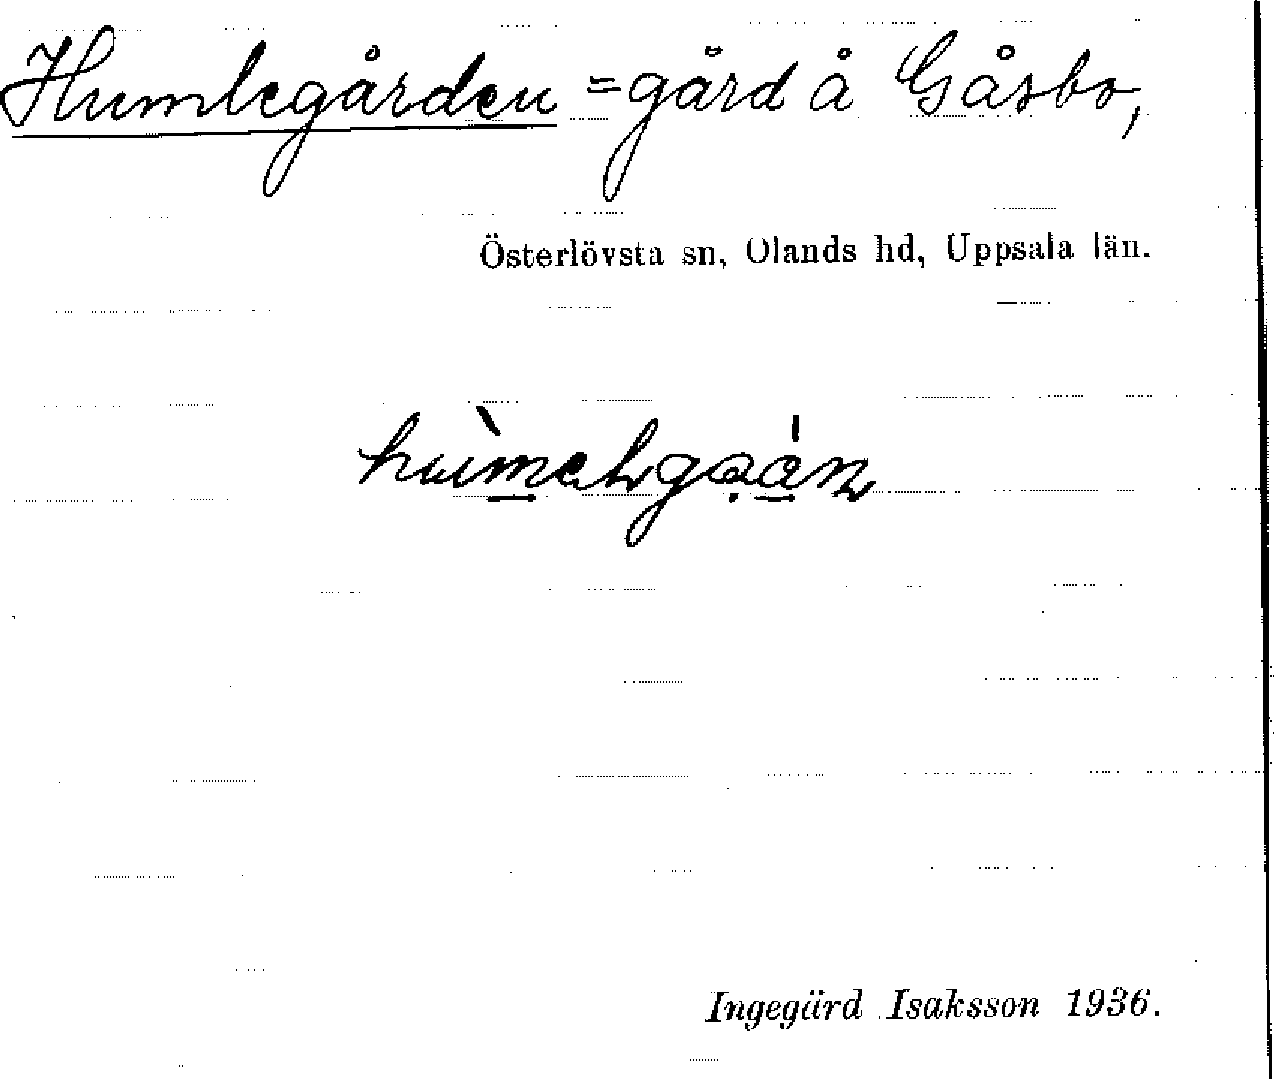 Humlegården = gård å Gåsbo,
Österlövsta sn, Olands hd, Uppsala län.
Ingegärd Isaksson 1936.